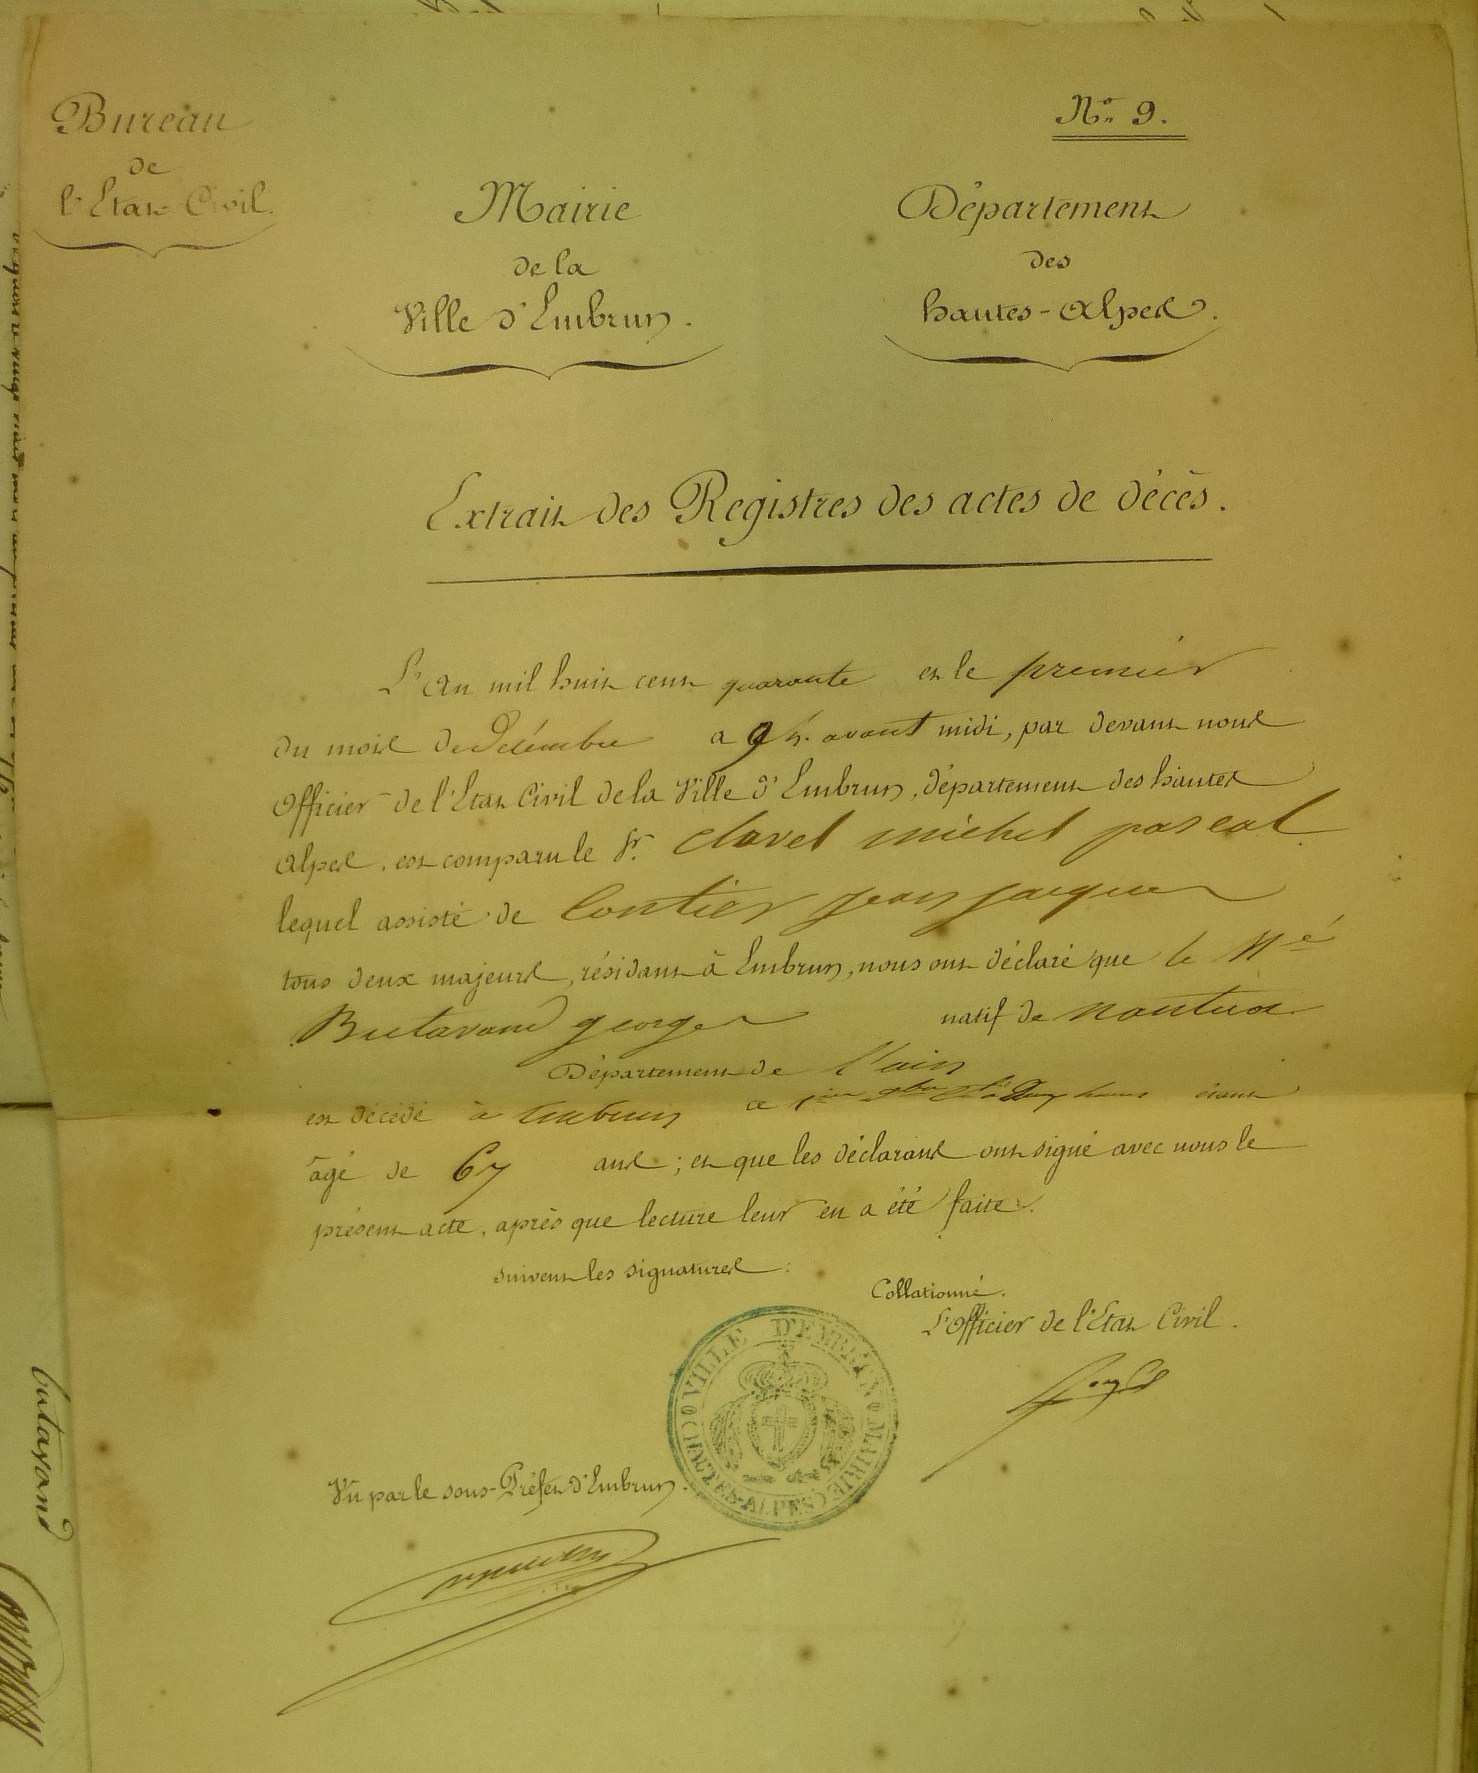 Bureau
de
l'Etat Civil.
N° 9.
Mairie
de la
Ville d'Embrun.
Département
des
hautes-Alpes.
Extrait des Registres des actes de décès.
L'An mil huit cent quarante et le premier
du mois de Décembre a 9 h. avant midi, par devant nous
Officier de l'Etat Civil de la Ville d'Embrun, département des hautes
Alpes, est comparu le Sr. Clavel michel pascal
lequel assisté de Contier jean jacques
tous deux majeurs, résidant à Embrun, nous ont déclaré que le Né
Butavand george natif de nantua
Département de l'ain
est décédé à Embrun ce heures étant
âgé de 67 ans ; et que les déclarans ont signé avec nous le
présent acte, après que lecture leur en a été faite.
suivent les signatures :
Collationné.
L'Officier de l'Etat Civil.
VILLE D'EMBRUN MAIRIE (HAUTES-ALPES)
Vû par le sous-Préfet d'Embrun.
butavand